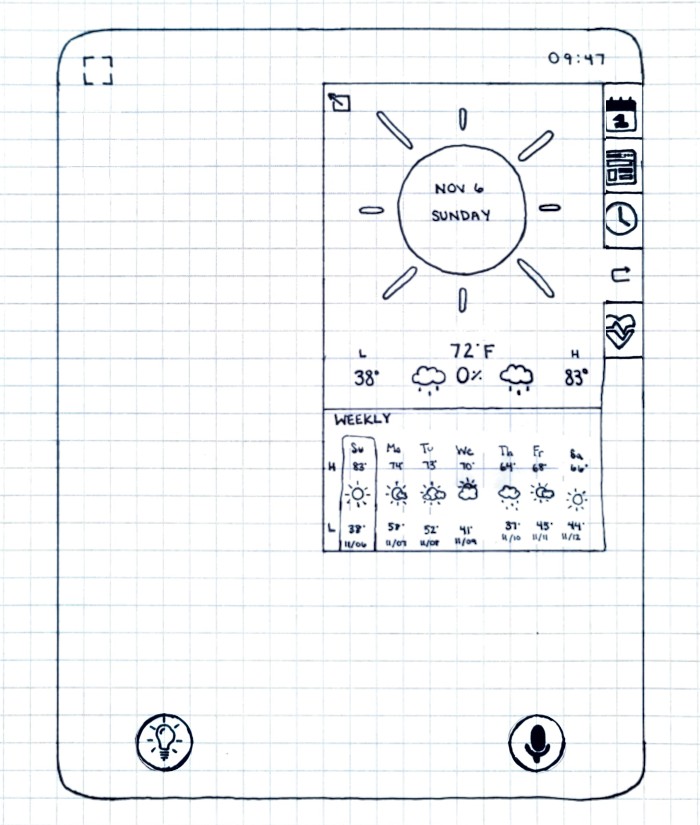 09:47
1
NOV 6
SUNDAY
72°F
L H
38° 0% 83°
WEEKLY
Su Mo Tu We Th Fr Sa
H 83° 74° 73° 70° 64° 68° 66°
L 38° 58° 52° 41° 37° 45° 44°
11/06 11/07 11/08 11/09 11/10 11/11 11/12